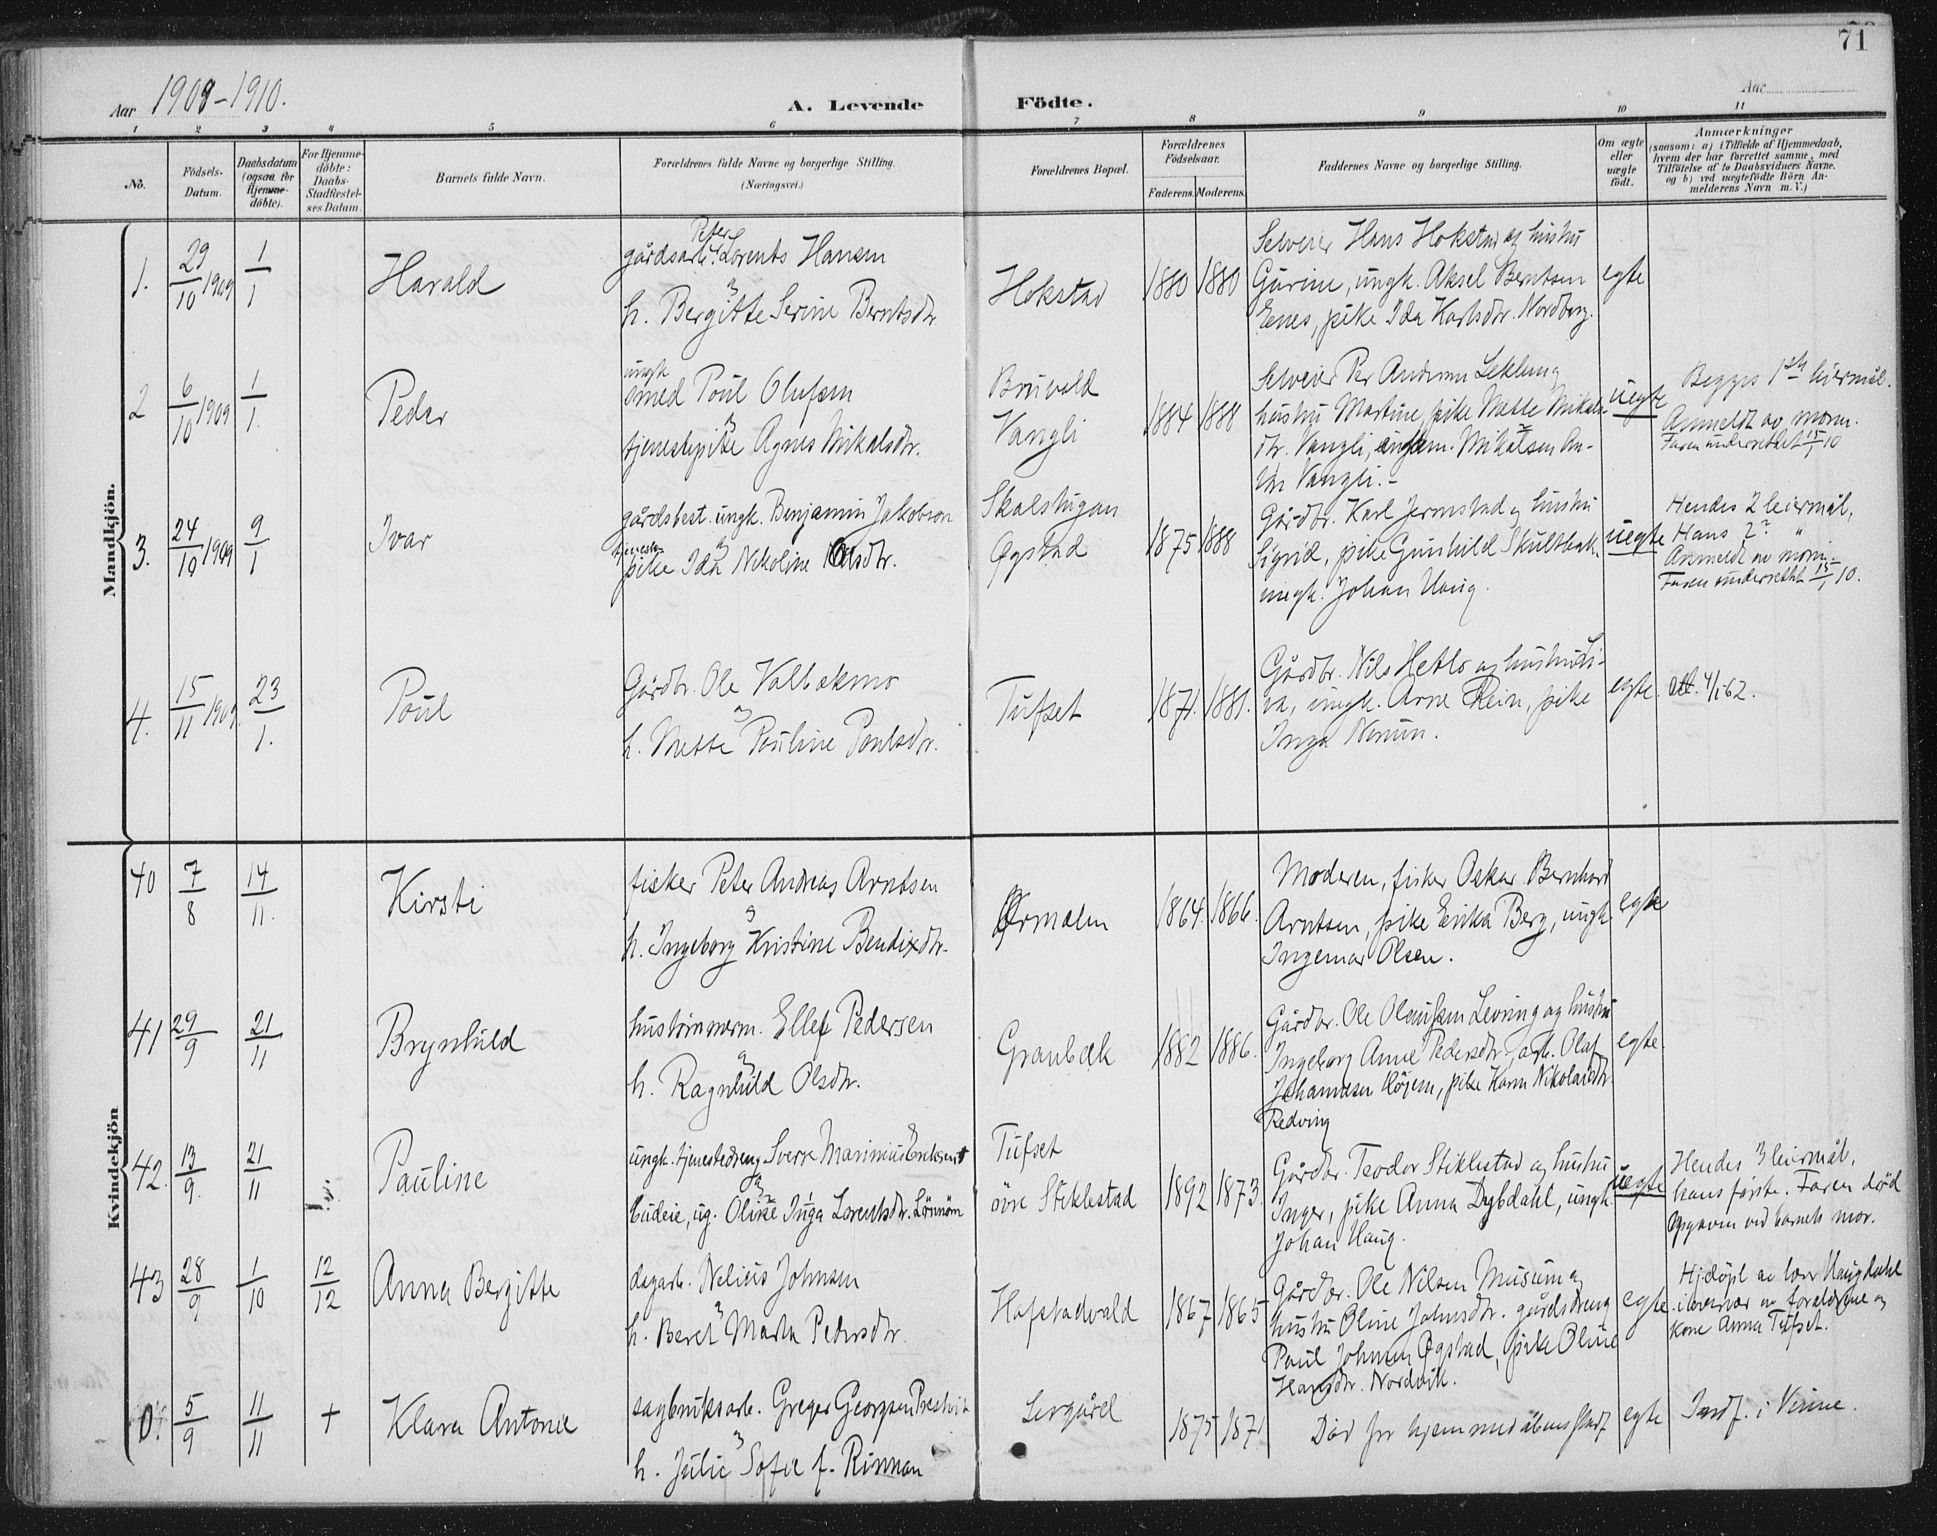 71
Aar 1909-1910.
A. Levende Födte.
Aar
1 2 3 4 5 6 7 8 9 10 11
No.
Födsels-
Datum.
Daabsdatum
(ogsaa for
Hjemme-
döbte).
For Hjemme-
döbte:
Daabs-
Stadfæstel-
ses Datum.
Barnets fulde Navn.
Forældrenes fulde Navne og borgerlige Stilling.
(Næringsvei.)
Forældrenes Bopæl.
Forældrenes
Födselsaar.
Faderens. Moderens.
Faddernes Navne og borgerlige Stilling.
Om ægte
eller
uægte
födt.
Anmærkninger
(saasom: a) i Tilfælde af Hjemmedaab,
hvem der har forrettet samme, med
Tilföielse af to Daabsvidners Navne.
og b) ved uægtefödte Börn An-
melderens Navn m. V.)
Mandkjön.
1. 29/10 1909 1/1 Harald
gårdsarb. Peter Lorents Hansen
h. Bergitte Serine Berntsdtr.
Hokstad 1880 1880
Selveier Hans Hokstad og hustru
Gurine, ungk. Aksel Berntsen
Enes, pike Ida Karlsdtr. Nordberg.
egte
2 6/10 1909 1/1. Peder
ungk
smed Poul Olufsen
tjenestepike Agnes Mikalsdtr.
Bruvold
Vangli
1884 1888
Selveier Per Andersen Leklung
hustru Martine, pike Mette Mikals-
dtr. Vangli, ungkm. Mikalsen An-
ton Vangli.-
uegte
Begges 1ste leiermål.
Anmeldt av moren.
Faren underrettet 15/1 10
3. 24/10 1909 9/1 Ivar
gårdsbest. ungk. Benjamin Jakobson
tjeneste
pike Ida Nikoline Olsdtr.
Skalstugan
Øgstad
1875 1888
Gårdbr. Karl Jermstad og hustru
Sigrid, pike Gunhild Skultbak.
ungk. Johan Haug.
uegte
Hendes 2 leiermål,
Hans 2? "
Anmeldt av moren.
Faren underrettet 15/1 10.
4. 15/11 1909. 23/1. Poul
Gårdbr. Ole Valbekmo
h. Mette Pouline Poulsdtr.
Tufset 1871. 1881.
Gårdbr. Nils Hetlo og hustru Li-
va, ungk. Arne Rein, pike
Inga Nenun.
egte. att. 4/1 62.
Kvindekjön
40 7/8 14/11. Kirsti
fisker Peter Andreas Arntsen
h. Ingeborg Kristine Bendixdtr.
Ørmelen 1864. 1866.
Moderen, fisker Oskar Bernhard
Arntsen, pike Erika Berg, ungk.
Ingemar Olsen.
egte
41 29/9 21/11 Brynhild
hustømmerm. Ellef Pedersen
h. Ragnhild Olsdtr.
Graubæk 1882 1886.
Gårdbr. Ole Olaussen Levring og hustru
Ingeborg Anne Pedersdtr, arb. Olaf
Johannesen Højem, pike Karen Nikolaisdtr
Redving
egte.
42. 13/9. 21/11 Pauline
ungk. tjenestedreng Sverre Marinius Eriksen†
budeie, ug. Oline Inga Lorentsdtr. Lönnöm
Tufset
övre Stiklestad
1892 1873.
Gårdbr. Teodor Stiklestad og hustru
Inger, pike Anna Dybdahl, ungk.
Johan Haug.
uegte
Hendes 3 leiermål,
hans første. Faren död
Opgaven ved barnets mor.
43 28/9 1/10 12/12 Anna Bergitte
dagarb. Nelius Johnsen
h. Beret Marta Pedersdtr.
Hofstadvald 1867 1865
Gårdbr. Ole Nilsen Musum og
hustru Oline Johnsdtr. gårdsdreng
Paul Johnsen Øgstad, pike Oline
Hansdtr. Nordvik.
egte.
Hjedøpt av lær Haugdahl
i overvær av foreldrene og
kone Anna Tufset.
0. 5/9 11/11 + Klara Antonie
sagbruksarb. Greger Georgsen Prestvik
h. Julie Sofie f. Rinnan
Sergård 1875 1871
Död før hjemmedåbens stadf
egte Indf. i Vinne.